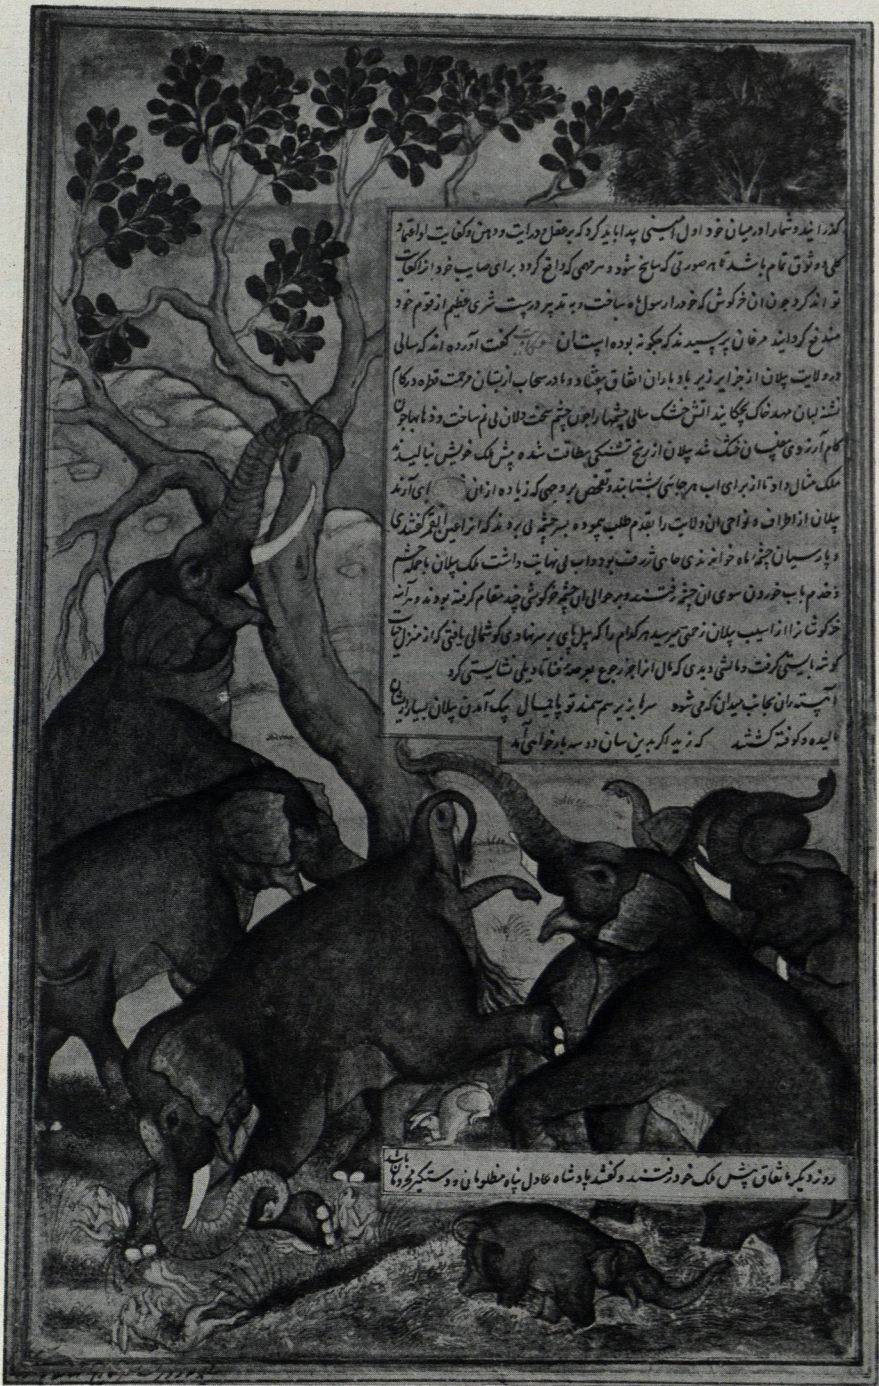 گذرانیند و شمارا در میان خود اول امینی پیدا باید کرد که بر عقل و درایت و ذهن و کفایت او اعتماد
کلی و وثوق تمام باشد تا هر صورتی که سانح شود و هر مهمی که واقع گردد برای صایب خود کفایت
تواند کرد چون ان خرکوش که خود را رسول ماه ساخت و به تدبیر درست شری عظیم از قوم خود
مندفع کردانید مرغان پرسیدند که چکونه بوده است ان حکایت گفت آورده اند که سالی
در ولایت پیلان از جزایر زیر باد باران اتفاق نیفتاد و مادر سحاب از پستان مرحمت قطره در کام
تشنه لبان مهد خاک نچکانید اتش خشک سالی چشمها را چون چشم سخت دلان بی نم ساخت و دهانها چون
کام آرزوی مفلسان خشک شد پیلان از رنج تشنکی بیطاقت شده پیش ملک خویش بنالیدند
ملک مثال داد تا از برای اب هر جانبی بشتابند و تفحص بر وجهی که زیاده از ان بجای آرند
پیلان از اطراف و نواحی ان ولایت را بقدم طلب پیموده بسر چشمه پی بردند که انرا عین القمر گفتندی
و پارسیان چشمه ماه خواندندی چاهی ژرف بود و اب بی نهایت داشت ملک پیلان با جمله حشم
و خدم باب خوردن سوی ان چشمه رفتند و بر حوالی ای چشمه خرکوشی چند مقام گرفته بودند و هر آینه
خرکوشانرا از اسیب پیلان زحمتی میرسید هر کدام را که پیل پای بر سر نهادی کوشمالی یافتی که از منزل حیات
کوشه بایستی گرفت و مالشی دیدی که مال از انجا رجوع بعرصه فنا تبدیلی نشایستی کرد
آهسته ران بجانب میدان که می شود سرها بزیر سم سمند تو پایمال بیک آمدن پیلان بسیار از ایشان
مالیده و کوفته گشتند که زید اگر بدین سان دو سه بار خواهی آمد
روز دیکر باتفاق پیش ملک خود رفتند و گفتند پادشاه عادل پناه مظلومان و دستگیر محرومان باشد